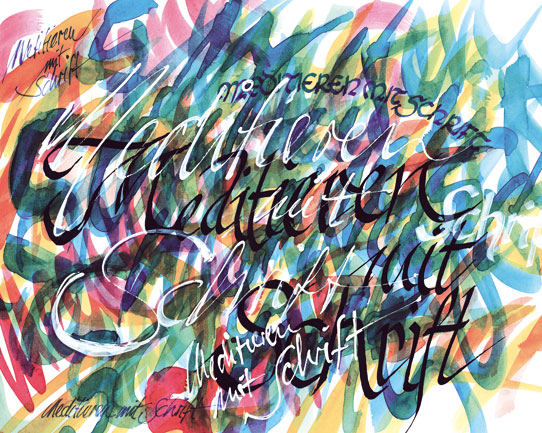 Meditieren
mit
Schrift
MEDITIEREN MIT SCHRIFT
Meditieren
mit
Schrift
Meditieren
mit
Schrift
Schrif
Meditieren
mit Schrift
Meditieren mit Schrift